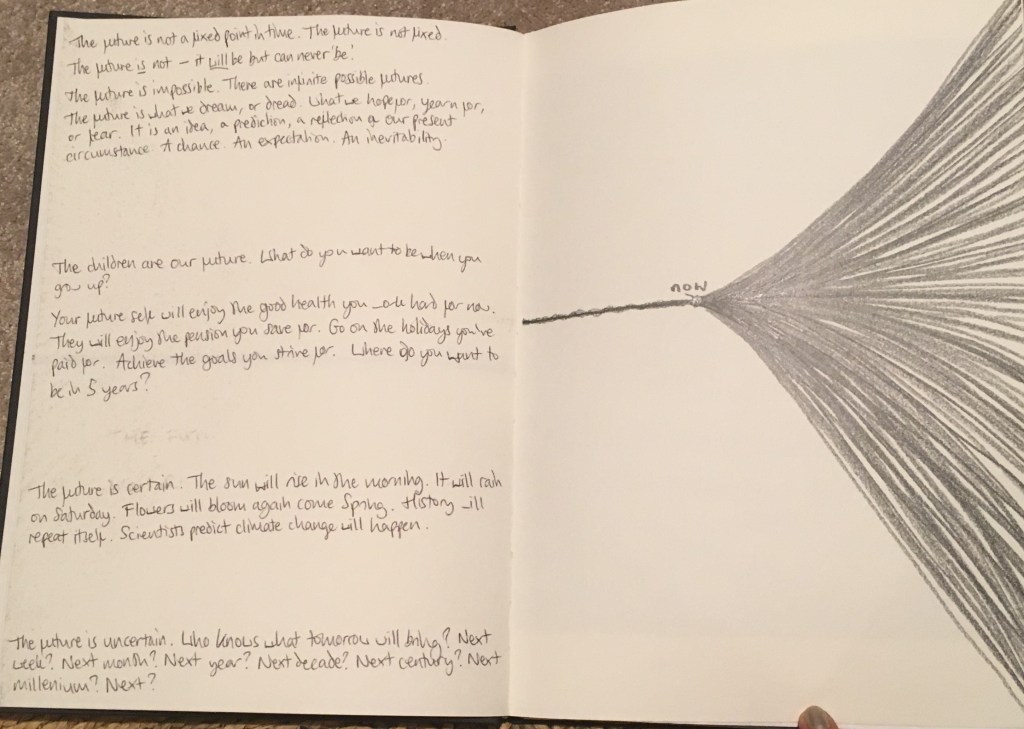 The future is not a fixed point in time. The future is not fixed.
The future is not – it will be but can never 'be'.
The future is impossible. There are infinite possible futures.
The future is what we dream, or dread. What we hope for, yearn for,
or fear. It is an idea, a prediction, a reflection of our present
circumstance. A chance. An expectation. An inevitability.
The children are our future. What do you want to be when you
grow up?
Your future self will enjoy the good health you work hard for now.
They will enjoy the pension you save for. Go on the holidays you've
paid for. Achieve the goals you strive for. Where do you want to
be in 5 years?
THE FUT
The future is certain. The sun will rise in the morning. It will rain
on Saturday. Flowers will bloom again come Spring. History will
repeat itself. Scientists predict climate change will happen.
The future is uncertain. Who knows what tomorrow will bring? Next
week? Next month? Next year? Next decade? Next century? Next
millenium? Next?
now